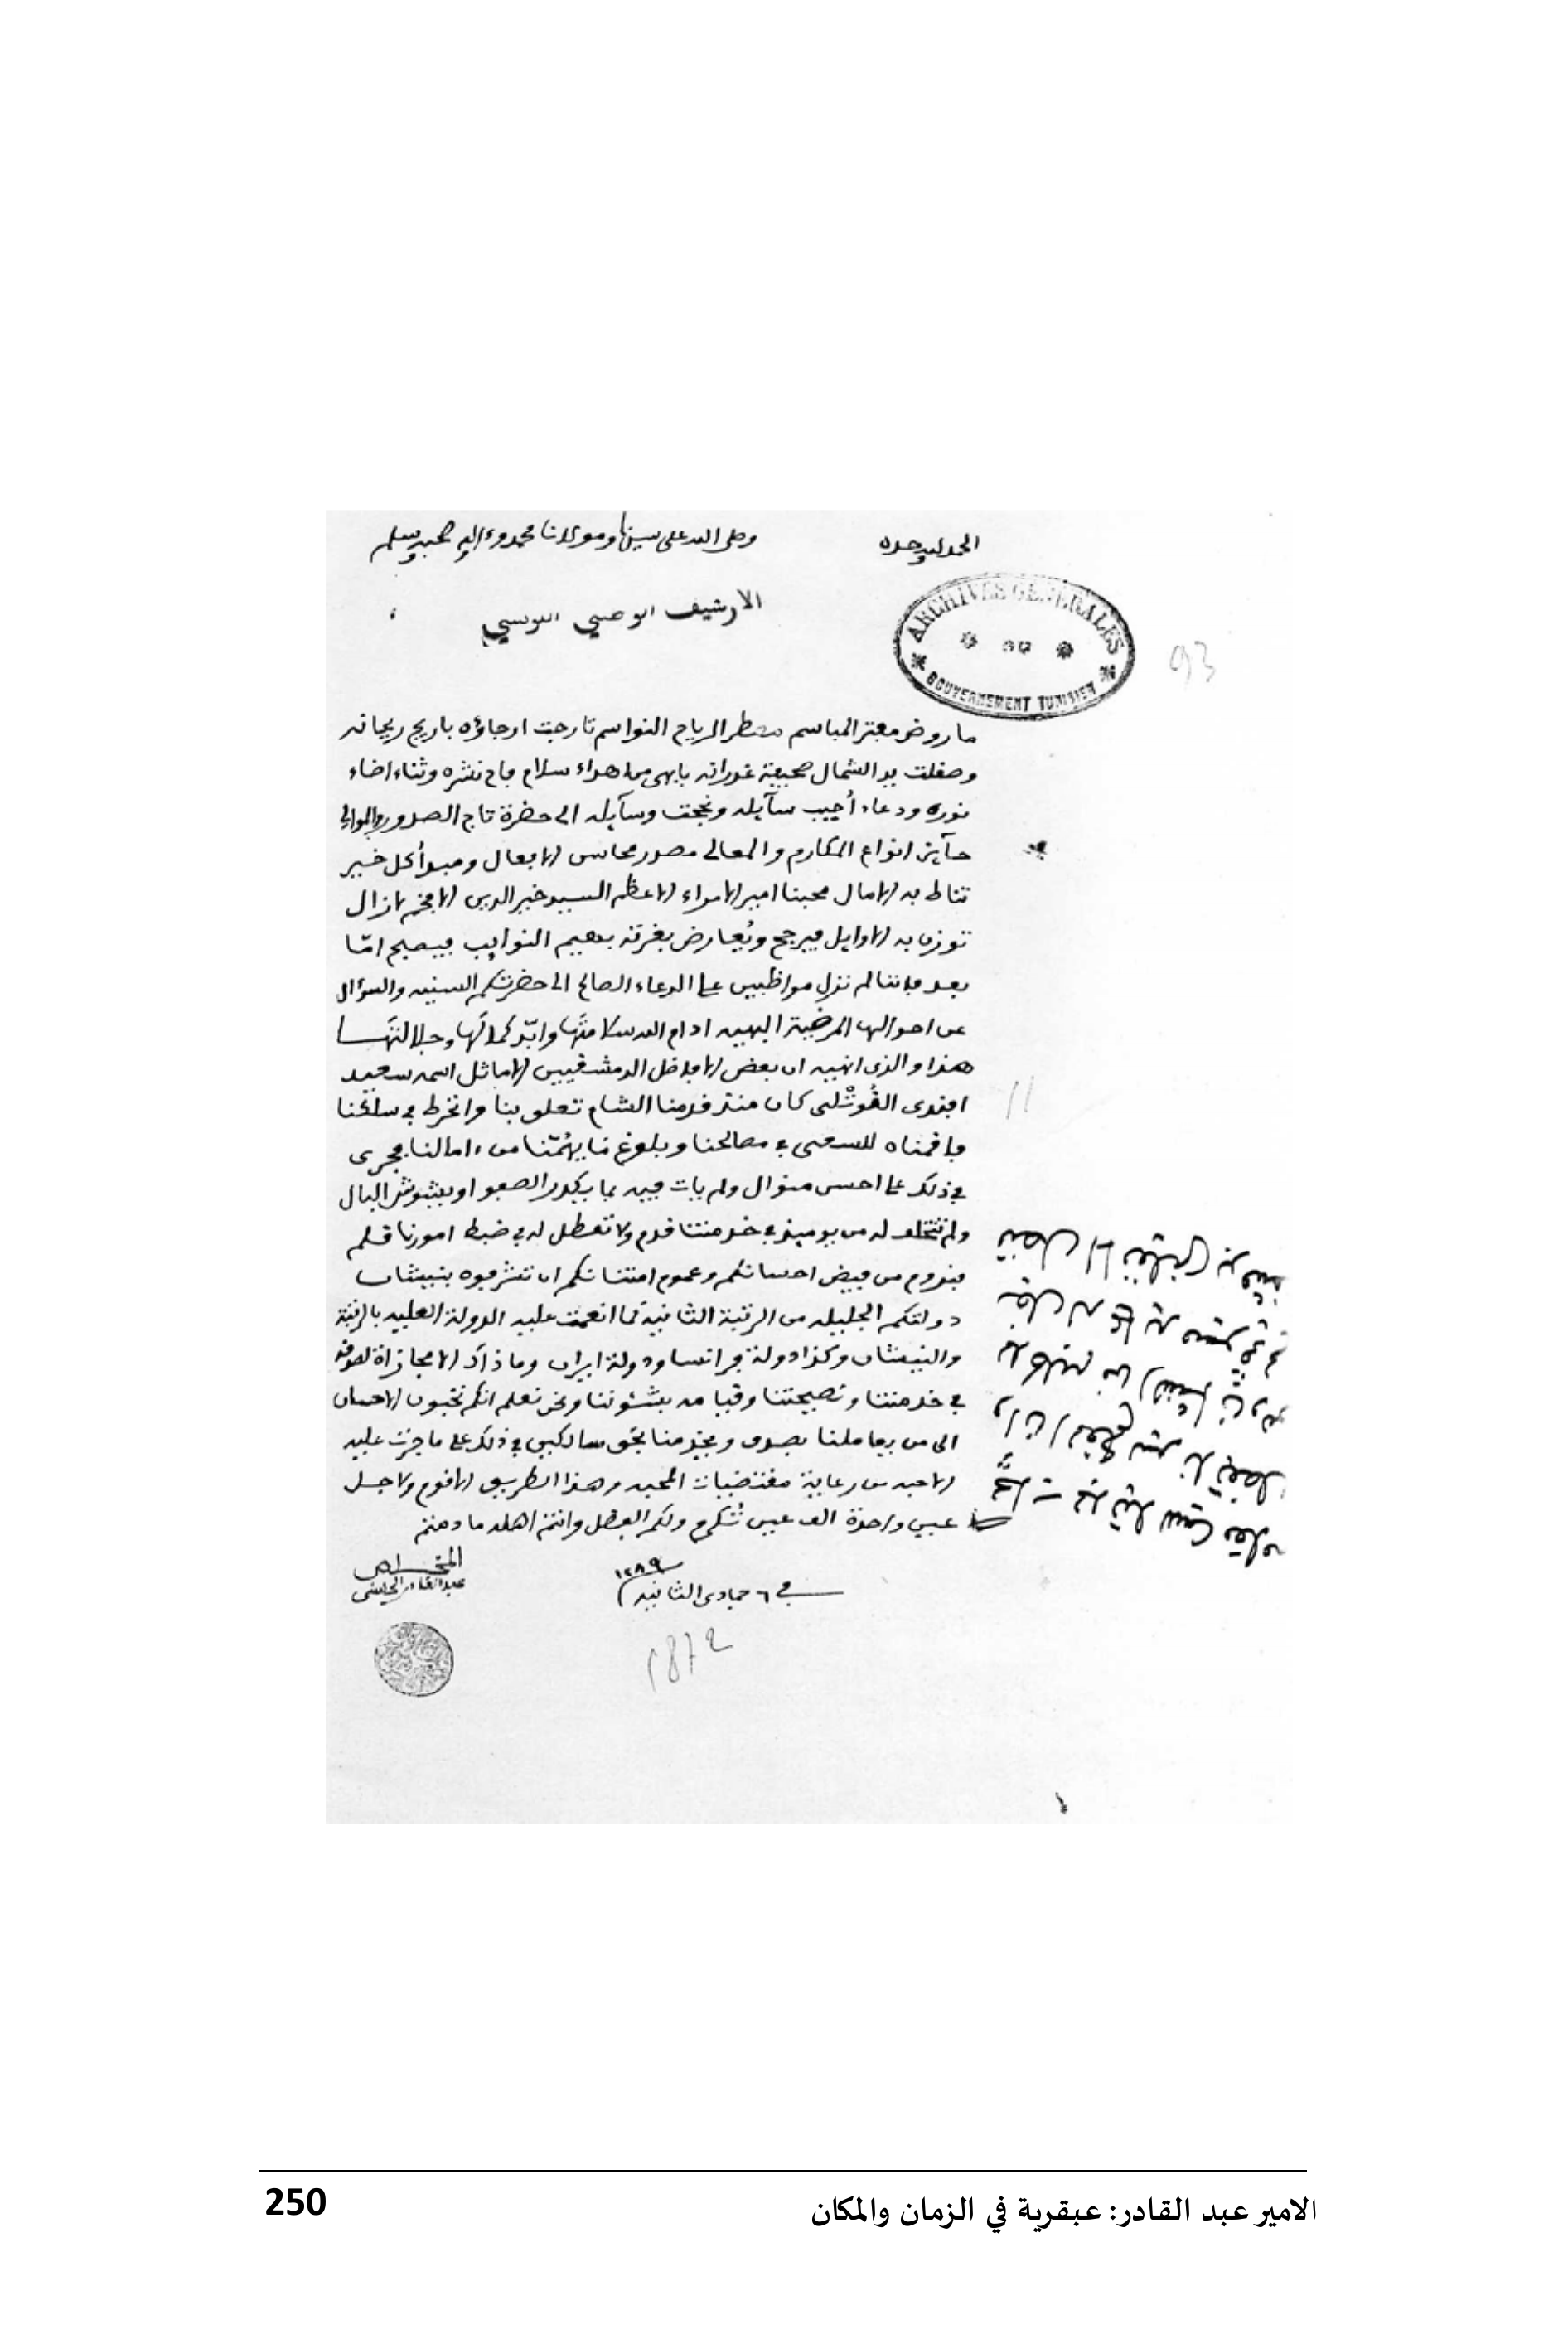 الحمد لله وحده
وصلى الله على سيدنا ومولانا محمد وءاله وصحبه وسلم
الارشيف الوطني التونسي
ARCHIVES GENERALES
GOUVERNEMENT TUNISIEN
93
ما روض مفتر المباسم معطر الرياح النواسم تارجت ارجاؤه باريج ريحانه
وصقلت يد الشمال صحيفة غدرانه بابهى مما هداء سلام فاح نشره وثناء اضاء
نوره ودعاء أجيب سآيله ونجحت وسآيله الى حضرة تاج الصدور والموالي
حآيز انواع المكارم والمعالى مصدر محاسن الافعال ومبدأ كل خير
تناط به الامال محبنا امير الامراء الاعظم السيد خير الدين الافخم لازال
توزن به الاوايل فيرجح ويُعارض بغرته بهيم النوايب فيصبح امّا
بعد فاننا لم نزل مواظبين على الدعاء الصالح الى حضرتكم السنيه والسؤال
عن احوالها المرضية البهيه ادام الله سلامتها وابّد كمالها وجلالتها
هذا والذى انهيه ان بعض الافاضل الدمشقيين الاماثل اسمه سعيد
افندى القُوتْلى كان منذ قدمنا الشام تعلق بنا وانخرط في سلكنا
فاقمناه للسعى في مصالحنا وبلوغ ما يهُمّنا من ءامالنا فجرى
في ذلك على احسن منوال ولم يات فيه بما يكدر الصفو او يشوش البال
ولم تتخلف له من يوميذ في خدمتنا قدم ولا تعطل له في ضبط امورنا قلم
فنروم من فيض احسانكم وعموم امتنانكم ان تشرفوه بنيشان
دولتكم الجليله من الرتبة الثانية كما انعمت عليه الدولة العليه بالرتبة
والنيشان وكذا دولة فرانسا ودولة ايران وما ذاك الا مجازاة لصدقه
في خدمتنا ونصيحتنا وقيامه بشئوننا ونحن نعلم انكم تحبون الاحسان
الى من يعاملنا بصدق ويخدمنا بحق سالكين في ذلك على ما جرت عليه
الاحبه من رعاية مقتضيات المحبه وهذا الطريق الاقوم ولاجل
عين واحدة الف عين تُكرم ولكم الفضل وانتم اهله ما دمتم
في ٦ جمادى الثانيه ١٢٨٩
المخلص
عبد القادر الحسنى
1872
11
الامير عبد القادر: عبقرية في الزمان والمكان
250